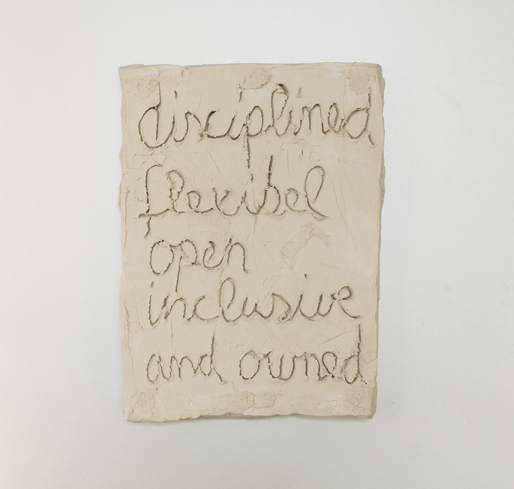 disciplined
flexibel
open
inclusive
and owned